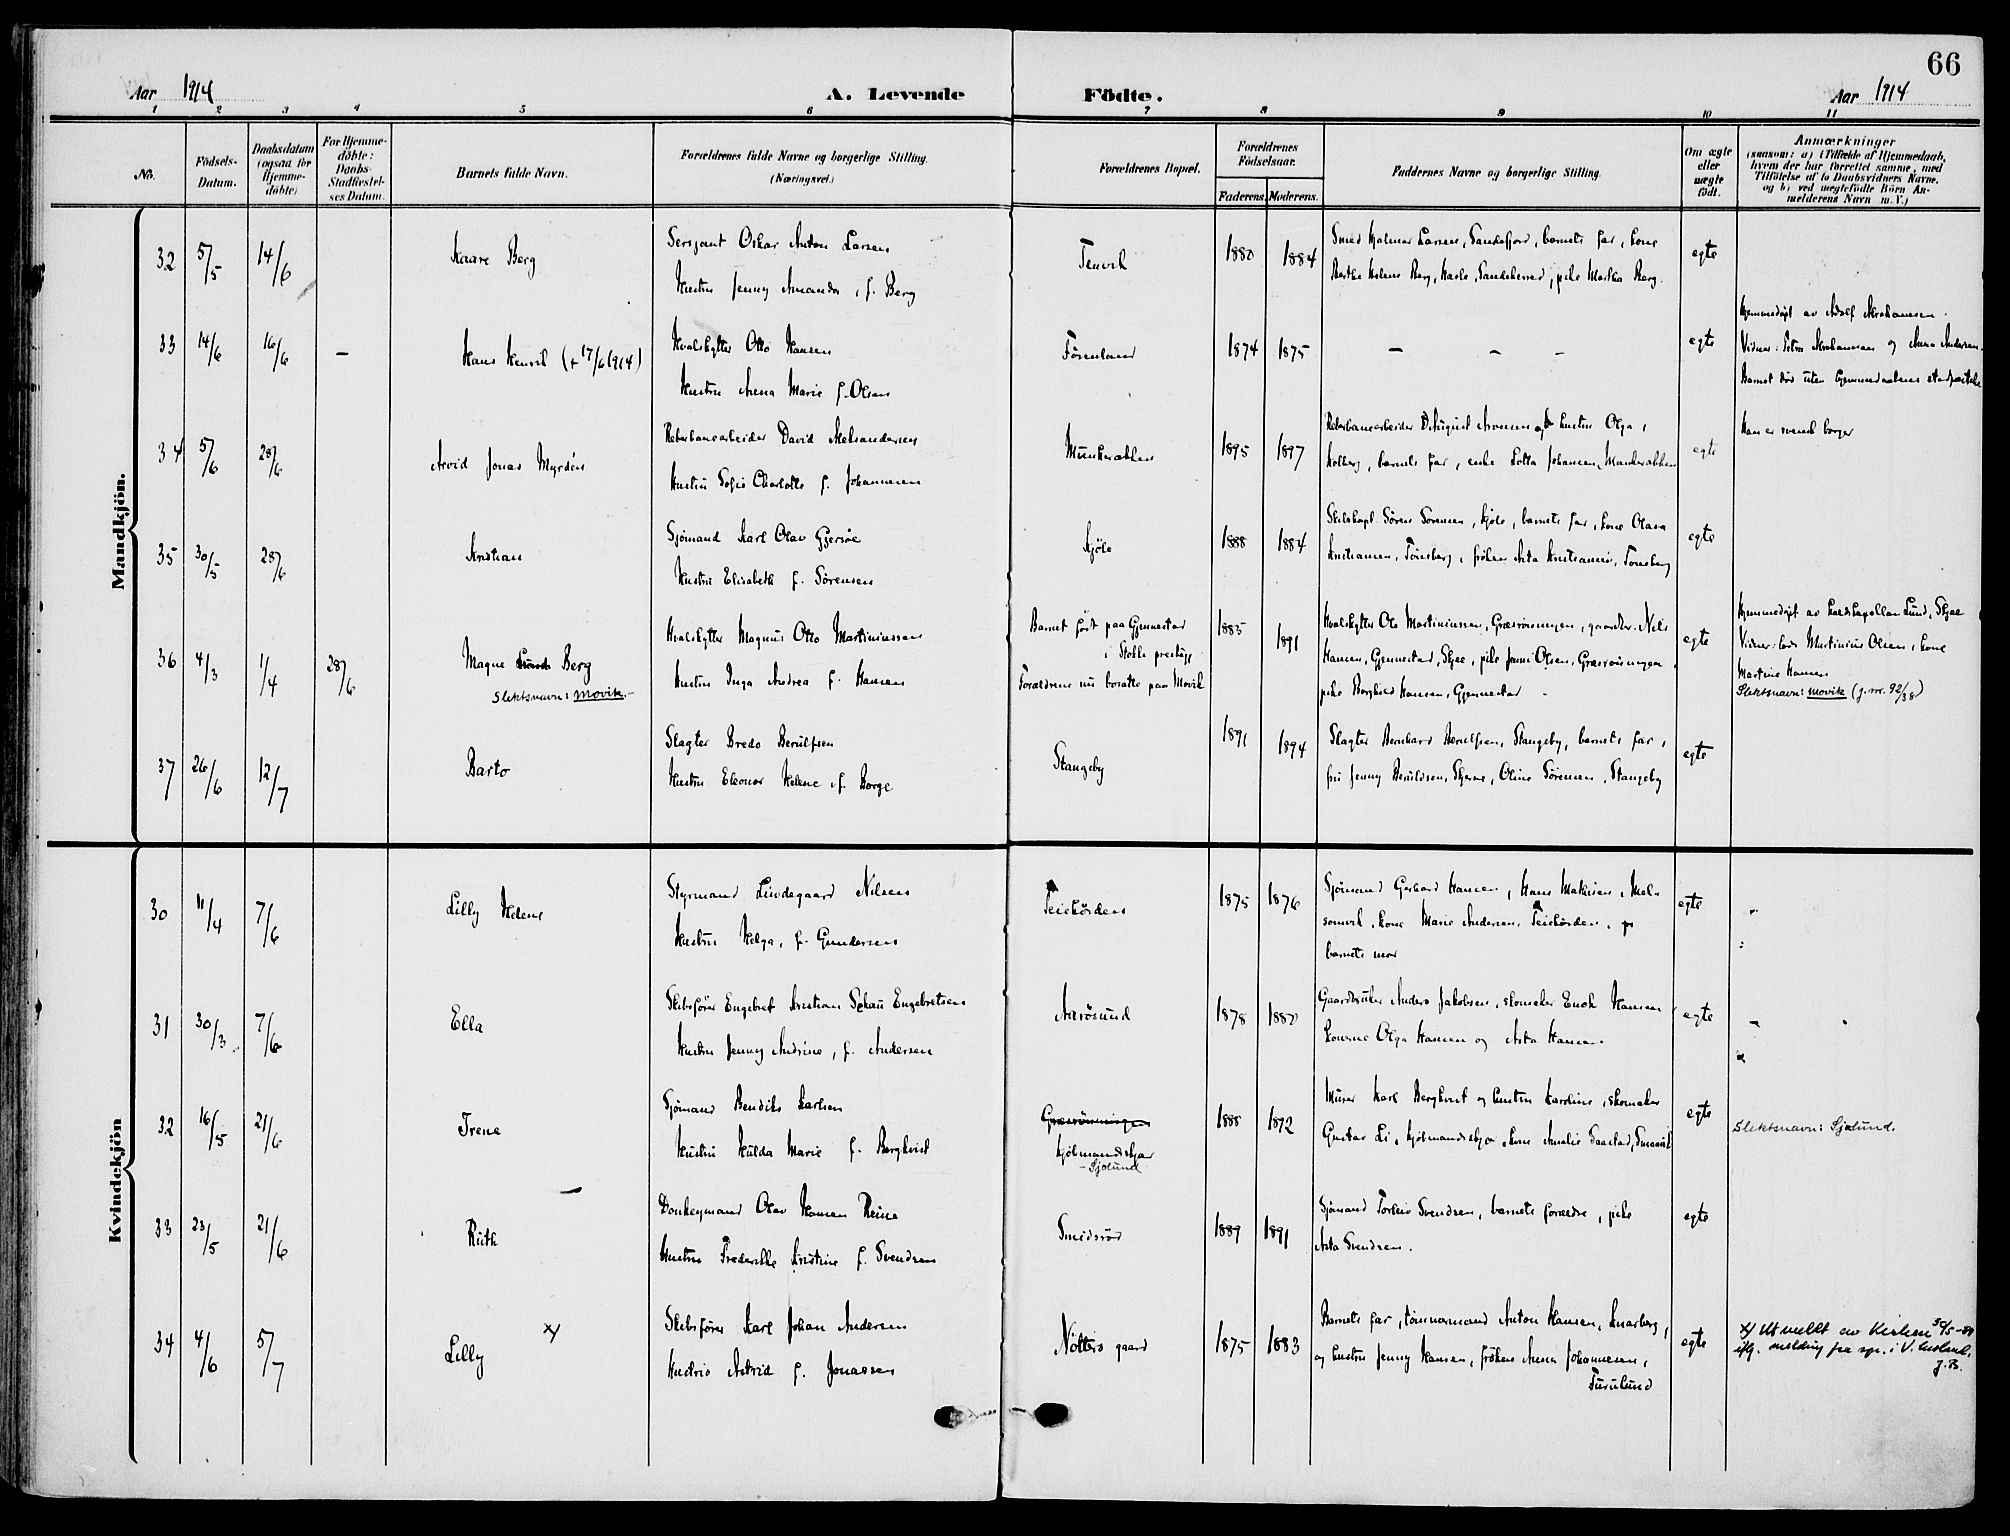 66
Aar 1914 A. Levende Födte. Aar 1914
1 2 3 4 5 6 7 8 9 10 11
No.
Födsels-Datum.
Daabsdatum (ogsaa for Hjemme-döbte)
For Hjemme-döbte: Daabs-Stadfæstel-ses Datum.
Barnets fulde Navn.
Forældrenes fulde Navne og borgerlige Stilling.
(Næringsvei.)
Forældrenes Bopæl.
Forældrenes Födselsaar.
Faderens. Moderens.
Faddernes Navne og borgerlige Stilling.
Om ægte eller uægte födt.
Anmærkninger
(saasom: a) i Tilfælde af Hjemmedaab,
hvem der har forrettet samme, med
Tilföielse af to Daabsvidners Navne.
og b) ved uægtefödte Börn An-
melderens Navn m. V.)
Mandkjön.
32 5/5 14/6 Kaare Berg
Sersjant Oskar Anton Larsen
Hustru Jenny Amanda, f. Berg
Tenvik 1880 1884
Smed Hjalmar Larsen, Sandefjord, barnets far, kone
Berthe Helene Berg, Hasle, Sandeherred, pike Martha Berg.
egte
33 14/6 16/6 – Hans Henrik (+ 17/6 1914)
Hvalskytter Otto Hansen
Hustru Anna Marie f. Olsen
Förenland 1874 1875 – – – egte
Hjemmedöpt av Adolf Abrahamsen.
Vidner: Petra Abrahamsen og Anna Andersen.
Barnet död uten hjemmedaabens stadfæstelse
34 5/6 28/6 Arvid Jonas Myrdén
Reberbanearbeider David Aleksandersen
Hustru Sofie Charlotte f. Johannesen
Munkerekken 1895 1897
Reberbanearbeider August Aronsen og hustru Olga,
Holberg, barnets far, enke Lotta Johansen, Munkerekken
egte
Han er svensk borger
35 30/5 28/6 Kristian
Sjömand Karl Olav Gjersöe
Hustru Elisabeth f. Sörensen
Kjöle 1888 1884
Skibskapt. Sören Sörensen, Kjöle, barnets far, kone Olava
Kristiansen, Tönsberg, fröken Asta Kristiansen, Tönsberg
egte
36 4/3 1/4 28/6 Magne Lund Berg
Slektsnavn: Movik.-
Hvalskytter Magnus Otto Martiniussen
Hustru Inga Andrea f. Hansen
Barnet födt paa Gjennestad
i Stokke prestegj.
Forældrene nu bosatte paa Movik
1885 1891
Hvalskytter Ole Martiniussen, Græsrönningen, gaardbr. Nils
Hansen, Gjennestad, Skjee, pike Jenni Olsen, Græsrönningen
pike Borghild Hansen, Gjennestad -
egte
Hjemmedöpt av kaldskapellan Lund, Skjee
Vidner: lods Martinius Olsen, kone
Martine Hansen
Slektsnavn: Movik (j. nr. 92/38)
37 26/6 12/7 Barto
Slagter Bredo Berulfsen
Hustru Eleonor Helene f. Borge
Stangeby 1891 1894
Slagter Bernhard Berulfsen, Stangeby, barnets far,
fru Jenny Beruldsen, Skjerve, Oline Sörensen, Stangeby
egte
Kvindekjön
30 11/4 7/6 Lilly Helene
Styrmand Lindegaard Nilsen
Hustru Helga, f. Gundersen
Teiehörden 1875 1876
Sjömand Gerhard Hansen, Hans Mathisen, Mel-
somvik, kone Marie Andersen, Teiehörden.
barnets mor
egte
31 30/3 7/6 Ella
Skibsförer Engebret Kristian Schau Engebretsen
Hustru Jenny Andrine, f. Andersen
Aarösund 1878 1880
Gaardbruker Anders Jakobsen, skomaker Enok Hansen
konerne Olga Hansen og Asta Hansen.
egte
32 16/5 21/6 Irene
Sjömand Bendiks Karlsen
Hustru Hulda Marie f. Bergkvist
Græsrönningen
Kjölmandskjær
- Sjölund
1888 1892
Murer Karl Bergkvist og hustru Kardine, skomaker
Gustav Li, Kjölmandskjær, kone Amalie Saastad, Smaavik
egte
Slektsnavn: Sjølund.
33 23/5 21/6 Ruth
Donkeymand Olav Hansen Reine
Hustru Frederikke Kristine f. Svendsen
Smidsröd 1889 1891
Sjömand Torleiv Svendsen, barnets forældre, pike
Asta Svendsen.
egte
34 4/6 5/7 Lilly x/
Skibsförer Karl Johan Andersen
Hustru Astrid f. Jonassen
Nötterö gaard 1875 1883
Barnets far, tömmermand Anton Hansen, Knarberg,
og hustru Jenny Hansen, fröken Anna Johannesen,
Furulund
egte
x/ Utmeldt av Kirken
iflg. melding fra spr. i